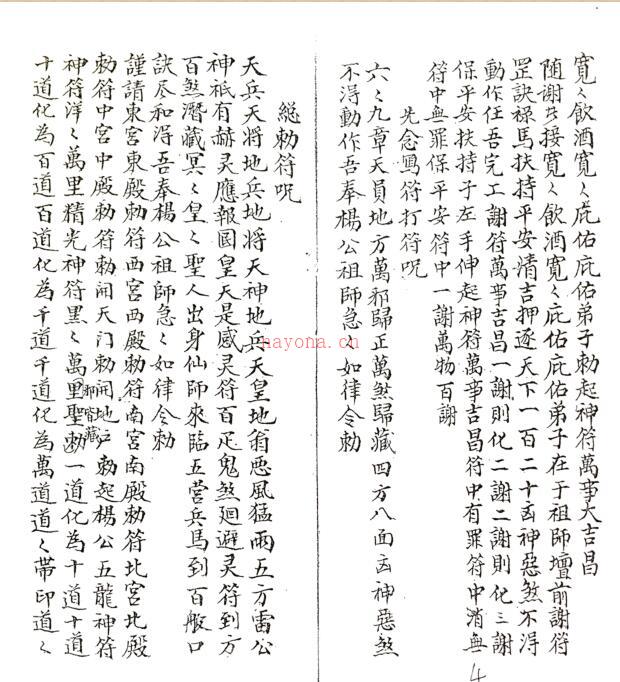 寬〻飲酒寬〻庇佑庇佑弟子勅起神符萬事大吉昌
随謝世接寬〻飲酒寬〻庇佑庇佑弟子在于祖師壇前謝符
罡訣禄馬扶持平安清吉押逐天下一百二十凶神惡煞不淂
動作任吾完工謝符萬事吉昌一謝則化二謝二謝則化三謝
保平安扶持子左手伸起神符萬事吉昌符中有罪符中消無
符中無罪保平安符中一謝萬物百謝
先念寫符打符咒
六〻九章天員地方萬邪歸正萬煞歸藏四方八面凶神惡煞
不淂動作吾奉楊公祖師急〻如律令勅
總勅符呪
天兵天将地兵地将天神地兵天皇地翁恶風猛雨五方雷公
神祇有赫灵應報國皇天是感灵符百疋鬼煞廻避灵符到方
百煞潛藏冥〻皇〻聖人出身仙師來臨五营兵馬到百般口
訣尽和淂吾奉楊公祖師急〻如律令勅
謹請東宮東殿勅符西宮西殿勅符南宮南殿勅符北宮北殿
勅符中宮中殿勅符勅開天门勅開地户勅起楊公五龍神符
神符洋〻萬里精光神符黑〻萬里聖勅一道化為十道十道
十道化為百道百道化為千道千道化為萬道道〻帶印道〻
nayona.cn
4